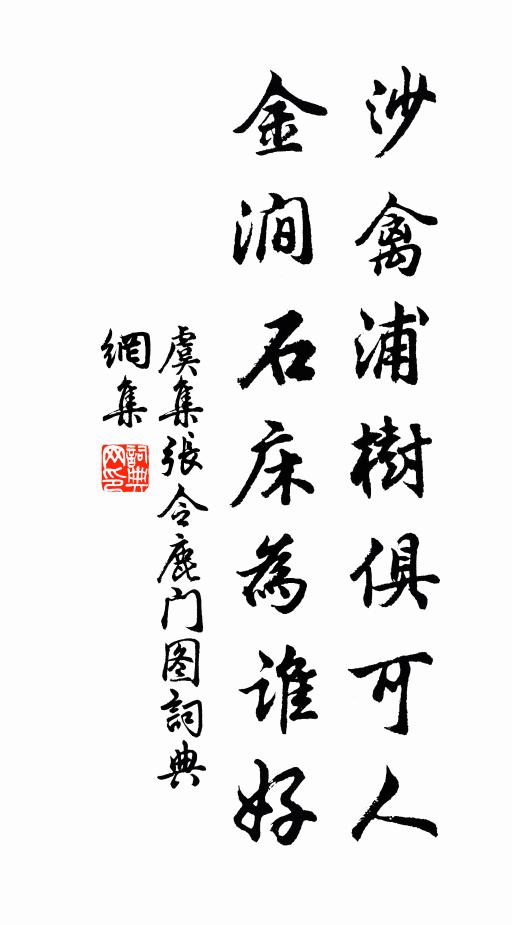 沙禽浦樹俱可人
金澗石床為誰好
虞集張令鹿门图詞典
網集
詞典
网印